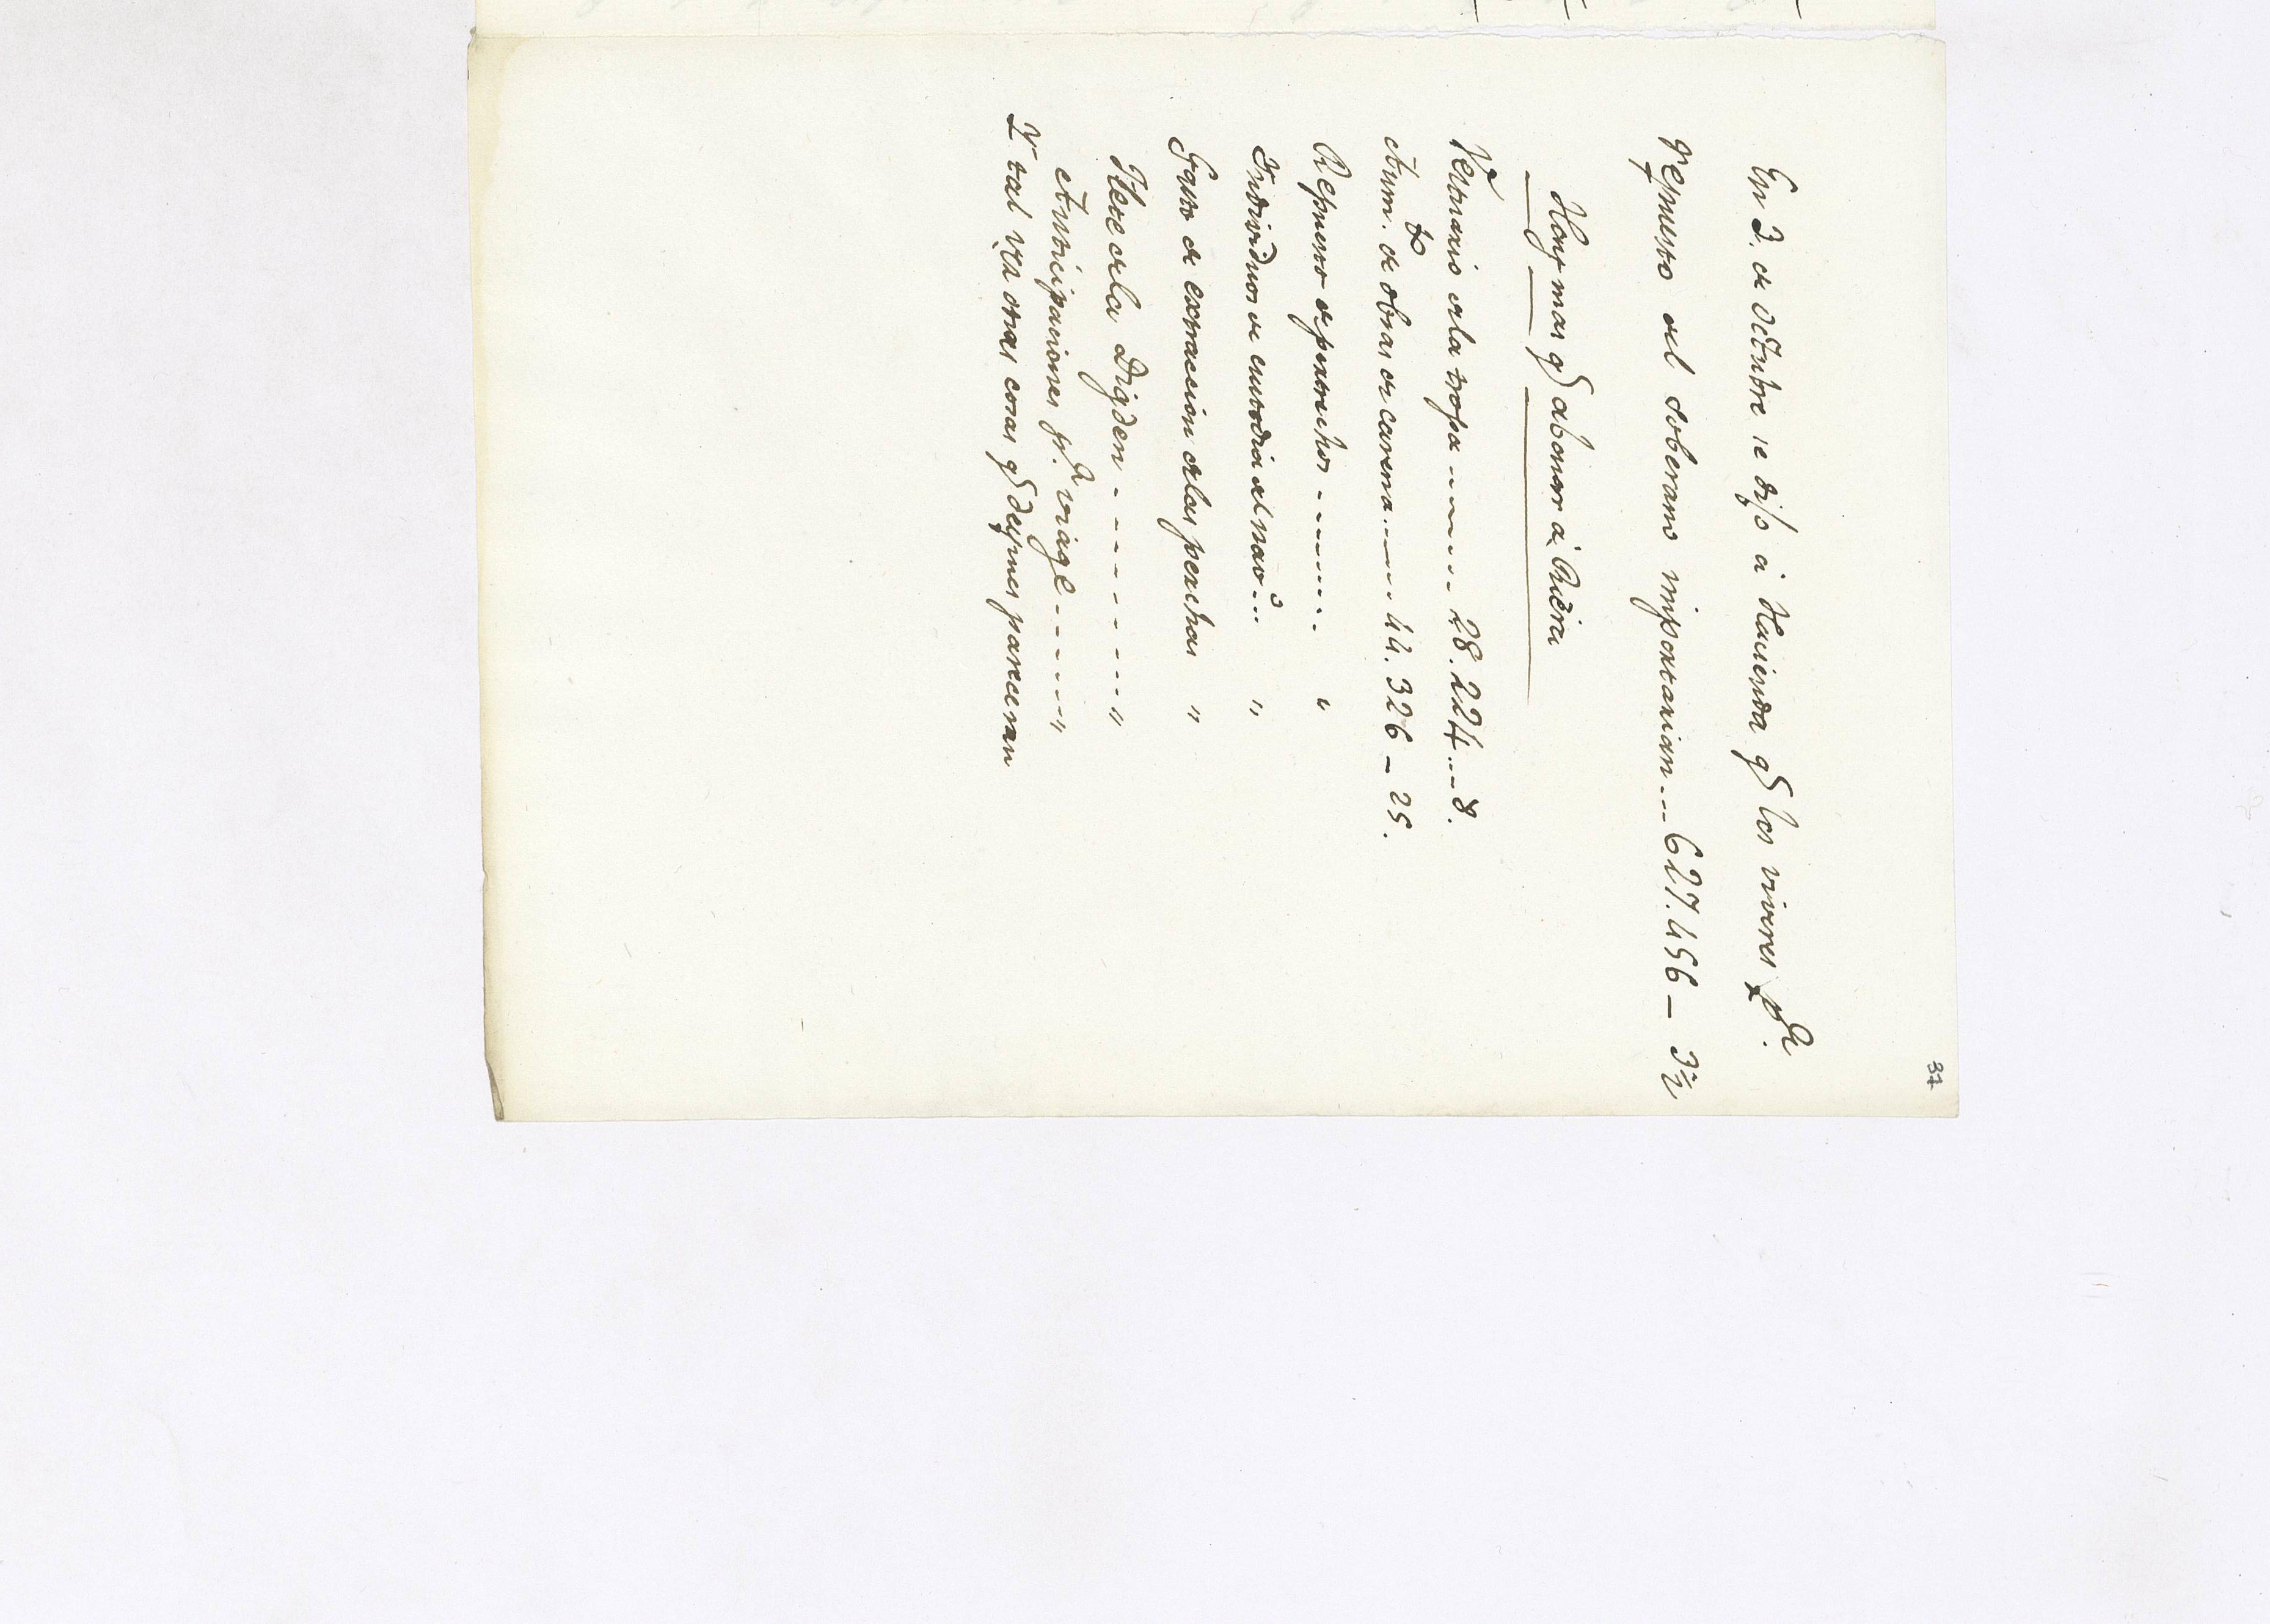 37
En 3. de Octubre se dijo á Hacienda qe los viveres pr.
repuesto del Soberano importarian...627.456 — 3½
Hay mas qe abonar á Riera
Vestuario dela tropa ........ 28.224...8.
Aum.to de obras de carena......44.326 — 25.
Repuesto de pertrechos ........ "
Individuos de custodia del nav.o... "
Gasto de extraccion delas perchas "
Flete dela Brigden ........ "
Anticipaciones pr. viage ...... "
Y tal vez otras cosas qe despues pareceran